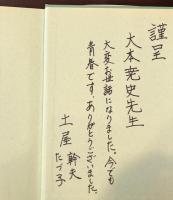 謹呈
大本堯史先生
大変お世話になりました。今でも
青春です。ありがとうございました。
土屋 幹夫
たづ子